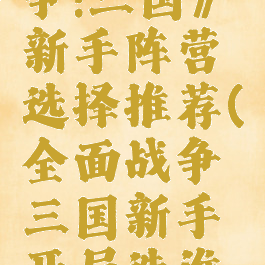 争:三国》
新手阵营
选择推荐(
全面战争
三国新手
开局选谁